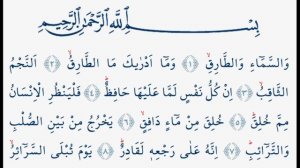 بِسْمِ اللهِ الرَّحْمٰنِ الرَّحِيْمِ
وَالسَّمَآءِ وَالطَّارِقِۙ ﴿١﴾ وَمَآ اَدْرٰىكَ مَا الطَّارِقُۙ ﴿٢﴾ النَّجْمُ
الثَّاقِبُۙ ﴿٣﴾ اِنْ كُلُّ نَفْسٍ لَّمَّا عَلَيْهَا حَافِظٌؕ ﴿٤﴾ فَلْيَنْظُرِ الْاِنْسَانُ
مِمَّ خُلِقَؕ ﴿٥﴾ خُلِقَ مِنْ مَّآءٍ دَافِقٍۙ ﴿٦﴾ يَّخْرُجُ مِنْۢ بَيْنِ الصُّلْبِ
وَالتَّرَآئِبِؕ ﴿٧﴾ اِنَّهٗ عَلٰى رَجْعِهٖ لَقَادِرٌؕ ﴿٨﴾ يَوْمَ تُبْلَى السَّرَآئِرُۙ